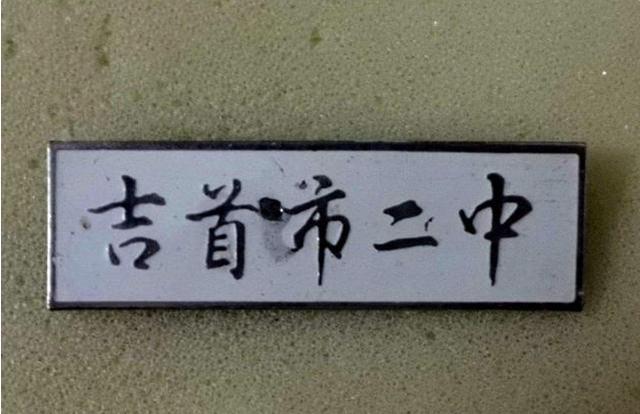 吉首市二中